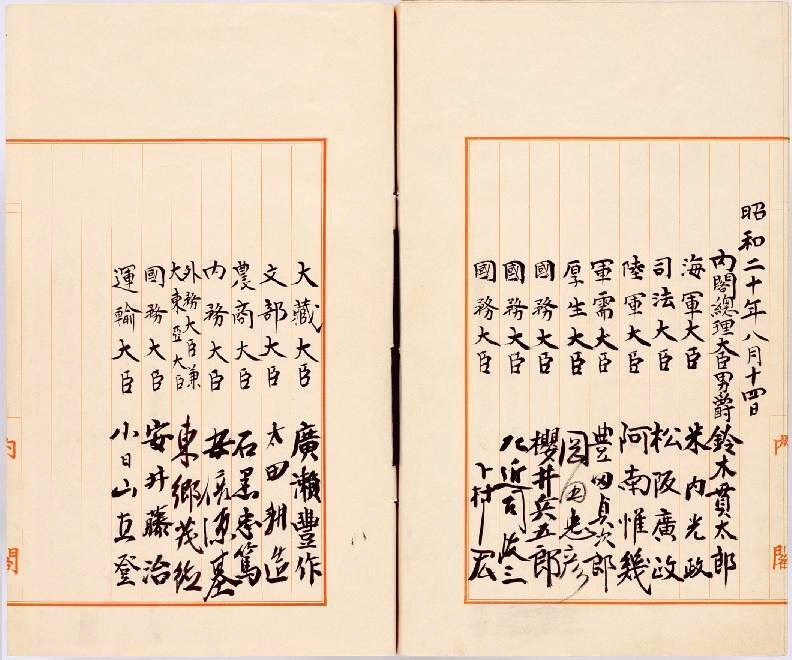 昭和二十年八月十四日
内閣總理大臣男爵鈴木貫太郎
海軍大臣 米内光政
司法大臣 松阪廣政
陸軍大臣 阿南惟幾
軍需大臣 豊田貞次郎
厚生大臣 岡田忠彦
國務大臣 櫻井兵五郎
國務大臣 左近司政三
國務大臣 下村宏
大藏大臣 廣瀬豐作
文部大臣 太田耕造
農商大臣 石黒忠篤
内務大臣 安倍源基
外務大臣兼
大東亞大臣 東郷茂徳
國務大臣 安井藤治
運輸大臣 小日山直登
内閣
内閣